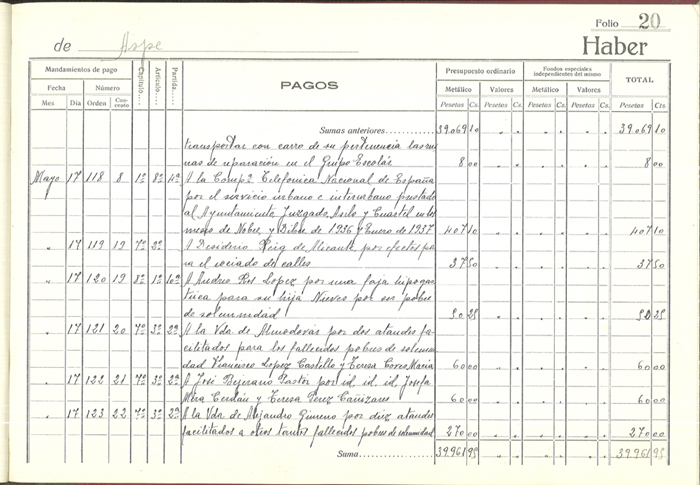 Folio 20
de Aspe Haber
Mandamientos de pago Capítulo Artículo Partida PAGOS Presupuesto ordinario Fondos especiales independientes del mismo TOTAL
Fecha Número Metálico Valores Metálico Valores
Mes Día Orden Concepto Pesetas Cs. Pesetas Cs. Pesetas Cs. Pesetas Cs. Pesetas Cts
Sumas anteriores 39.069 10 39.069 10
transportar con carro de su pertenencia las rui
nas de reparación en el Grupo Escolar 8 00 8 00
Mayo 17 118 8 1º 8º 4º A la Compª Telefonica Nacional de España
por el servicio urbano e interurbano prestado
al Ayuntamiento, Juzgado, Asilo y Cuartel en los
meses de Nobre. y Dibre de 1936 y Enero de 1937 407 10 407 10
" 17 119 19 7º 2º A Desiderio Reig de Alicante por efectos pa
ra el rociado de calles 37 50 37 50
" 17 120 19 8º 1º 10º A Andres Lopez por una faja hipogas
trica para su hija Nieves por ser pobre
de solemnidad 50 25 50 25
" 17 121 20 7º 3º 2º A la Vda. de Almodovar por dos ataudes fa
cilitados para los fallecidos pobres de solemni
dad Francisco Lopez Castello y Teresa Maria 60 00 60 00
" 17 122 21 7º 3º 2º A José Bejerano Pastor por id. id. id. Josefa
Mira Cerdán y Teresa Perez Cañizares 60 00 60 00
" 17 123 22 7º 3º 2º A la Vda. de Alejandro Gimeno por diez ataudes
facilitados a otros tantos fallecidos pobres de solemnidad 270 00 270 00
Suma 39.961 95 39.961 95